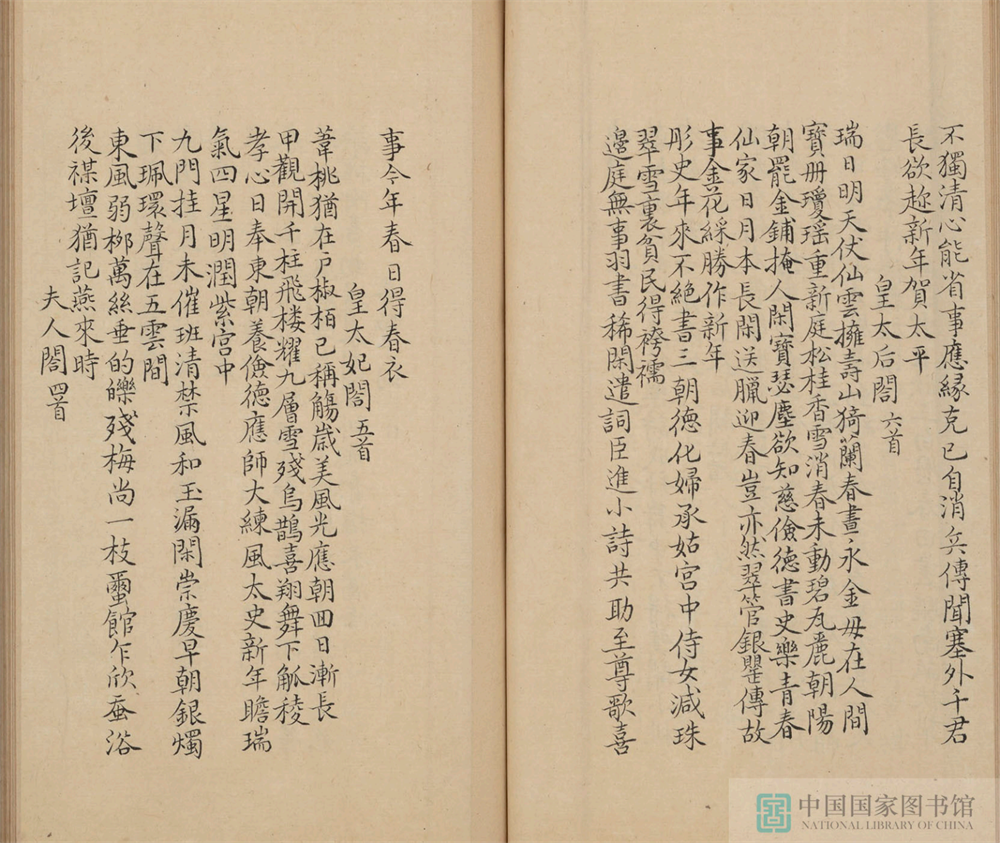 不獨清心能省事應緣克已自消兵傳聞塞外千君
長欲趂新年賀太平
皇太后閤 六首
瑞日明天仗仙雲擁壽山猗蘭春晝永金母在人間
寶册瓊瑶重新庭松桂香雪消春未動碧瓦麗朝陽
朝罷金鋪掩人閑寶瑟塵欲知慈儉德書史樂青春
仙家日月本長閑送臘迎春豈亦然翠管銀罌傳故
事金花綵勝作新年
彤史年來不絶書三朝德化婦承姑宫中侍女減珠
翠雪裏貧民得袴襦
邊庭無事羽書稀閑遣詞臣進小詩共助至尊歌喜
事今年春日得春衣
皇太妃閤 五首
葦桃猶在戸椒栢已稱觴歲美風光應朝回日漸長
甲觀開千柱飛楼耀九層雪殘烏鵲喜翔舞下觚稜
孝心日奉東朝養儉德應師大練風太史新年瞻瑞
氣四星明潤紫宫中
九門挂月未催班清禁風和玉漏閑崇慶早朝銀燭
下珮環聲在五雲間
東風弱栁萬絲垂的皪殘梅尚一枝蠒館乍欣蚕浴
後禖壇猶記燕來時
夫人閤 四首
中国国家图书馆
NATIONAL LIBRARY OF CHINA